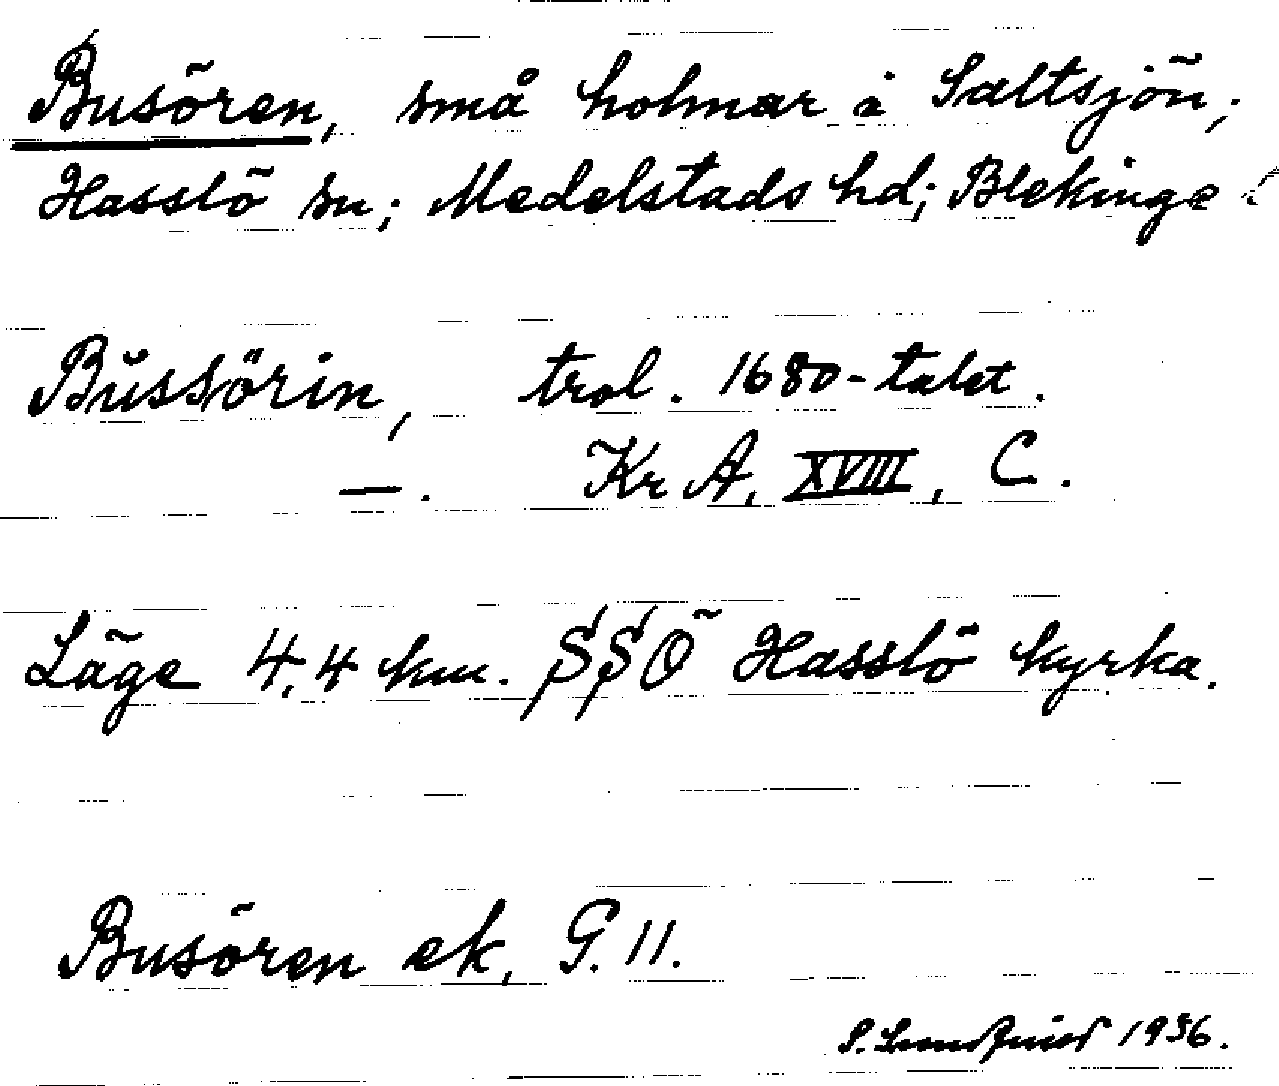 Busören, små holmar i Saltsjön;
Hasslö sn; Medelstads hd; Blekinge l
Bŭssörin, trol. 1680-talet.
—. Kr A, XVIII, C.
Läge 4,4 km. SSÖ Hasslö kyrka.
Busören ek, G. 11.
S. 1936.